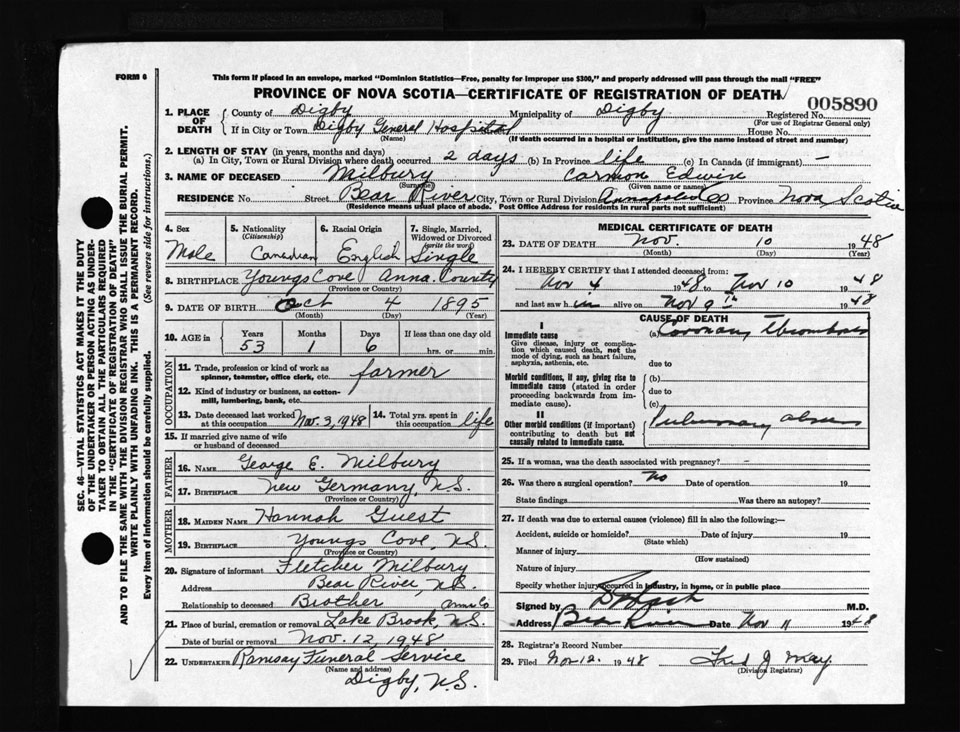 FORM 6
This form if placed in an envelope, marked "Dominion Statistics—Free, penalty for improper use $300," and properly addressed will pass through the mail "FREE"
PROVINCE OF NOVA SCOTIA—CERTIFICATE OF REGISTRATION OF DEATH
005890
1. PLACE OF DEATH
County of Digby Municipality of Digby Registered No.
(For use of Registrar General only)
If in City or Town Digby General Hospital House No.
(Name) (If death occurred in a hospital or institution, give the name instead of street and number)
2. LENGTH OF STAY (in years, months and days)
(a) In City, Town or Rural Division where death occurred 2 days (b) In Province life (c) In Canada (if immigrant) —
3. NAME OF DECEASED Milbury Carmon Edwin
(Surname) (Given name or names)
RESIDENCE No. Street Bear River City, Town or Rural Division Annapolis Co Province Nova Scotia
(Residence means usual place of abode. Post Office Address for residents in rural parts not sufficient)
4. Sex Male
5. Nationality (Citizenship) Canadian
6. Racial Origin English
7. Single, Married, Widowed or Divorced (write the word) Single
8. BIRTHPLACE Youngs Cove Anna. County
(Province or Country)
9. DATE OF BIRTH Oct 4 1895
(Month) (Day) (Year)
10. AGE in Years 53 Months 1 Days 6 If less than one day old hrs. or min.
OCCUPATION
11. Trade, profession or kind of work as spinner, teamster, office clerk, etc. farmer
12. Kind of industry or business, as cotton-mill, lumbering, bank, etc.
13. Date deceased last worked at this occupation Nov. 3, 1948
14. Total yrs. spent in this occupation life
15. If married give name of wife or husband of deceased
FATHER
16. NAME George E. Milbury
17. BIRTHPLACE New Germany, N.S.
(Province or Country)
MOTHER
18. MAIDEN NAME Hannah Guest
19. BIRTHPLACE Youngs Cove, N.S.
(Province or Country)
20. Signature of informant Fletcher Milbury
Address Bear River, N.S.
Relationship to deceased Brother Anna Co
21. Place of burial, cremation or removal Lake Brook, N.S.
Date of burial or removal Nov. 12, 1948
22. UNDERTAKER Ramsay Funeral Service
(Name and address)
Digby, N.S.
MEDICAL CERTIFICATE OF DEATH
23. DATE OF DEATH Nov. 10 1948
(Month) (Day) (Year)
24. I HEREBY CERTIFY that I attended deceased from:
Nov 4 1948 to Nov 10 1948
and last saw him alive on Nov 9th 1948
CAUSE OF DEATH
I
Immediate cause
Give disease, injury or complication which caused death, not the mode of dying, such as heart failure, asphyxia, asthenia, etc.
(a) Coronary Thrombosis
due to
Morbid conditions, if any, giving rise to immediate cause (stated in order proceeding backwards from immediate cause).
(b)
due to
(c)
II
Other morbid conditions (if important) contributing to death but not causally related to immediate cause.
Pulmonary
25. If a woman, was the death associated with pregnancy? —
26. Was there a surgical operation? No Date of operation 19
State findings Was there an autopsy?
27. If death was due to external causes (violence) fill in also the following:—
Accident, suicide or homicide? Date of injury 19
(State which)
Manner of injury
(How sustained)
Nature of injury
Specify whether injury occurred in industry, in home, or in public place
Signed by M.D.
Address Bear River Date Nov 11 1948
28. Registrar's Record Number
29. Filed Nov 12. 1948 Fred J. May.
(Division Registrar)
SEC. 46—VITAL STATISTICS ACT MAKES IT THE DUTY
OF THE UNDERTAKER OR PERSON ACTING AS UNDER-
TAKER TO OBTAIN ALL THE PARTICULARS REQUIRED
IN THE "CERTIFICATE OF REGISTRATION OF DEATH"
AND TO FILE THE SAME WITH THE DIVISION REGISTRAR WHO SHALL ISSUE THE BURIAL PERMIT.
WRITE PLAINLY WITH UNFADING INK. THIS IS A PERMANENT RECORD.
Every item of information should be carefully supplied. (See reverse side for instructions.)